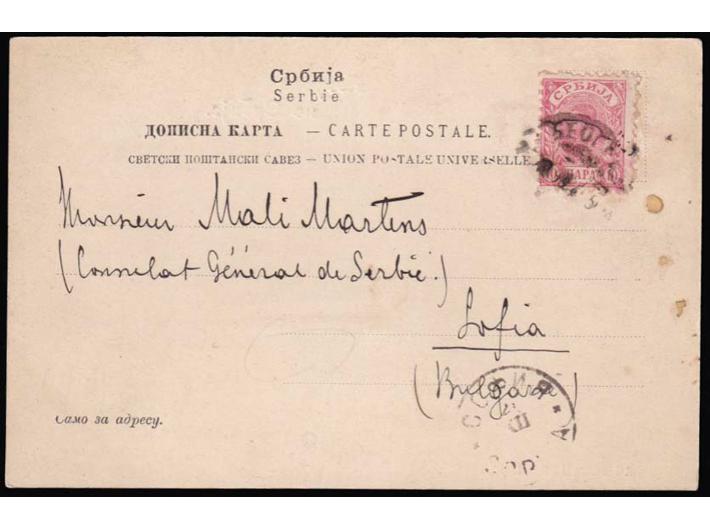 Србија
Serbie
ДОПИСНА КАРТА — CARTE POSTALE.
СВЕТСКИ ПОШТАНСКИ САВЕЗ — UNION POSTALE UNIVERSELLE.
СРБИЈА
БЕОГР
ПАРА
Monsieur Mali Martens
(Consulat Général de Serbie.)
Sofia
(Bulgarie)
Само за адресу.